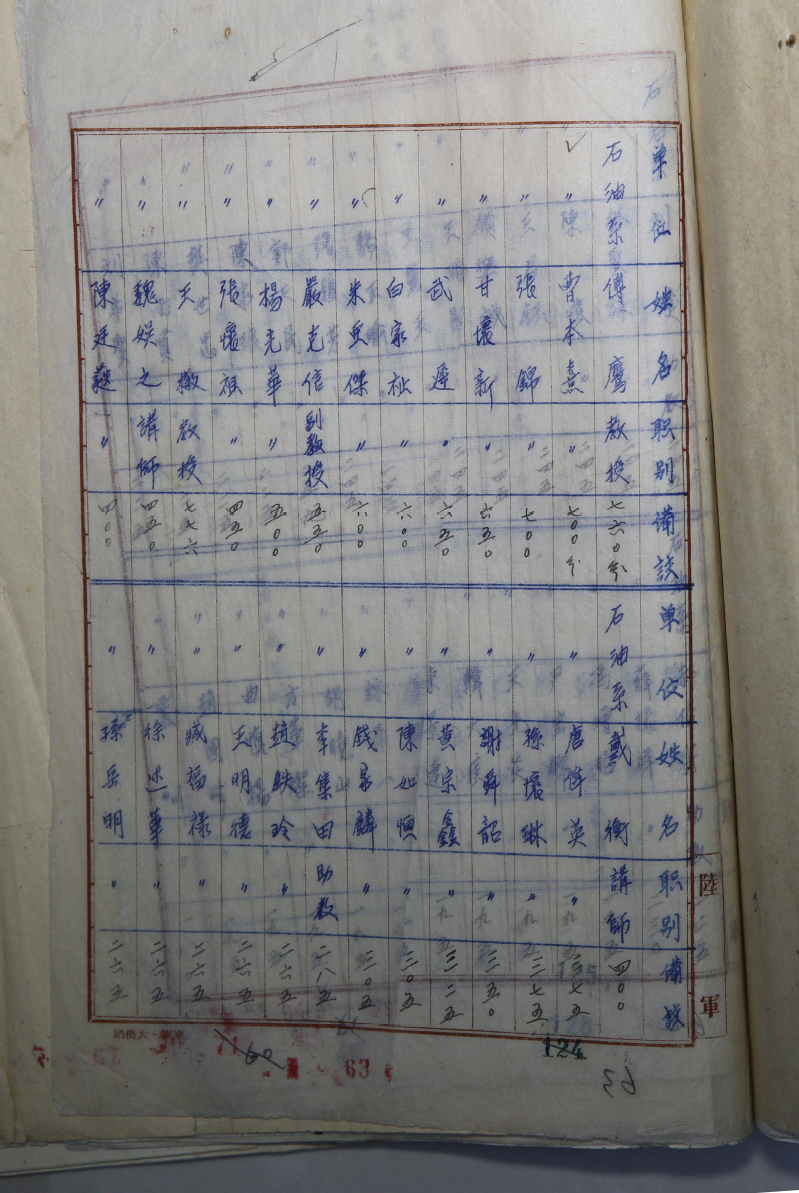 单位 姓名 职别 备註 单位 姓名 职别 備註
石油系 傅鹰 教授 七六〇分 石油系 戴衡 講師 四〇〇
〃 曹本熹 〃 七〇〇分 〃 唐偉英 〃 三七五
〃 張錦 〃 七〇〇 〃 孫壞琳 〃 三七五
〃 甘壞新 〃 六五〇 〃 謝舜韶 〃 三五〇
〃 武遲 〃 六五〇 〃 黄宗鑫 〃 三二五
〃 白家祉 〃 六〇〇 〃 陳如恒 〃 三〇五
〃 朱亜傑 〃 六〇〇 〃 錢家麟 〃 三〇五
〃 嚴克信 副教授 五五〇 〃 李集田 助教 二八五
〃 楊光華 〃 五〇〇 〃 趙鉄玲 〃 二六五
〃 張壞祖 〃 四五〇 〃 王明德 〃 二六五
〃 天撖 教授 七七六 〃 臧福禄 〃 二六五
〃 魏娱之 講師 四五〇 〃 徐述華 〃 二六五
〃 陳廷蕤 〃 四〇〇 〃 孫岳明 〃 二六五
陸軍
63
124